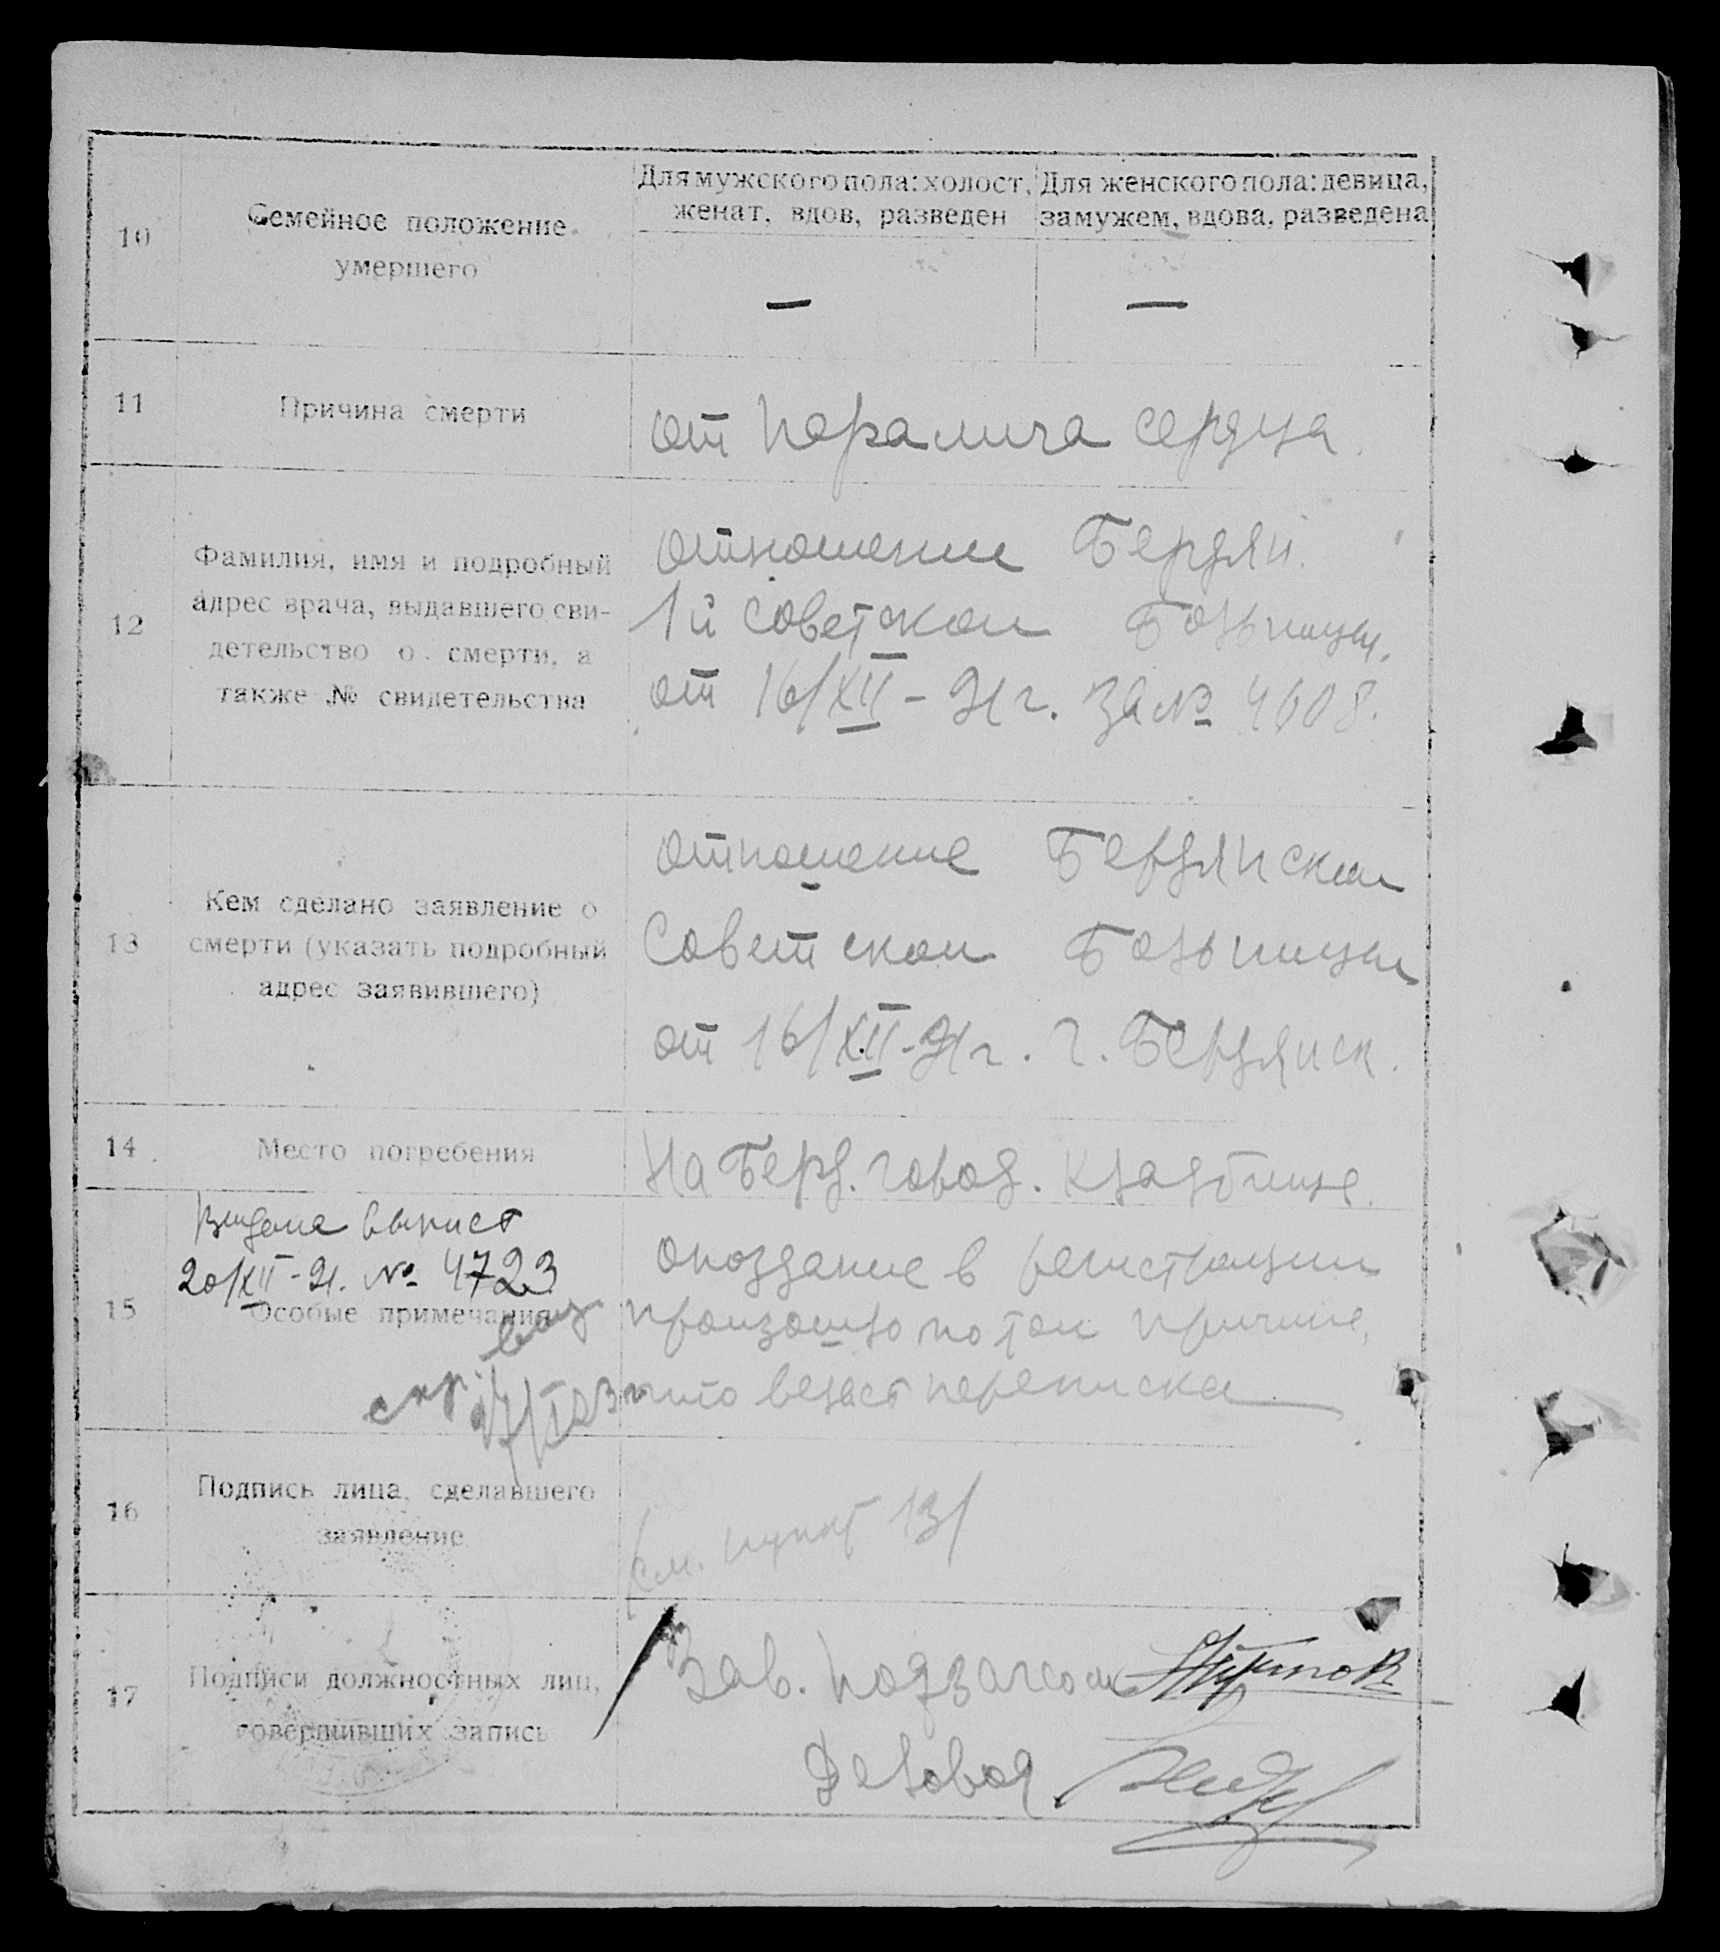 10
Семейное положение
умершего
Для мужского пола: холост,
женат, вдов, разведен
Для женского пола: девица,
замужем, вдова, разведена
—
—
11
Причина смерти
от паралича сердца.
12
Фамилия, имя и подробный
адрес врача, выдавшего сви-
детельство о смерти, а
также № свидетельства
отношение Бердян.
1й советской Больницы.
от 16/XII-21г. за № 4608.
13
Кем сделано заявление о
смерти (указать подробный
адрес заявившего)
отношение Бердянской
Советской Больницы
от 16/XII-21г. г. Бердянск.
14
Место погребения
На Берд. город. кладбище.
15
Выдана выпись
20/XII-21. № 4723
Особые примечания
опоздание в регистрации
произошло по той причине,
что велась переписка
16
Подпись лица, сделавшего
заявление
/см. пункт 13/
17
Подписи должностных лиц,
совершивших запись
Зав. подзагсом
Деловод